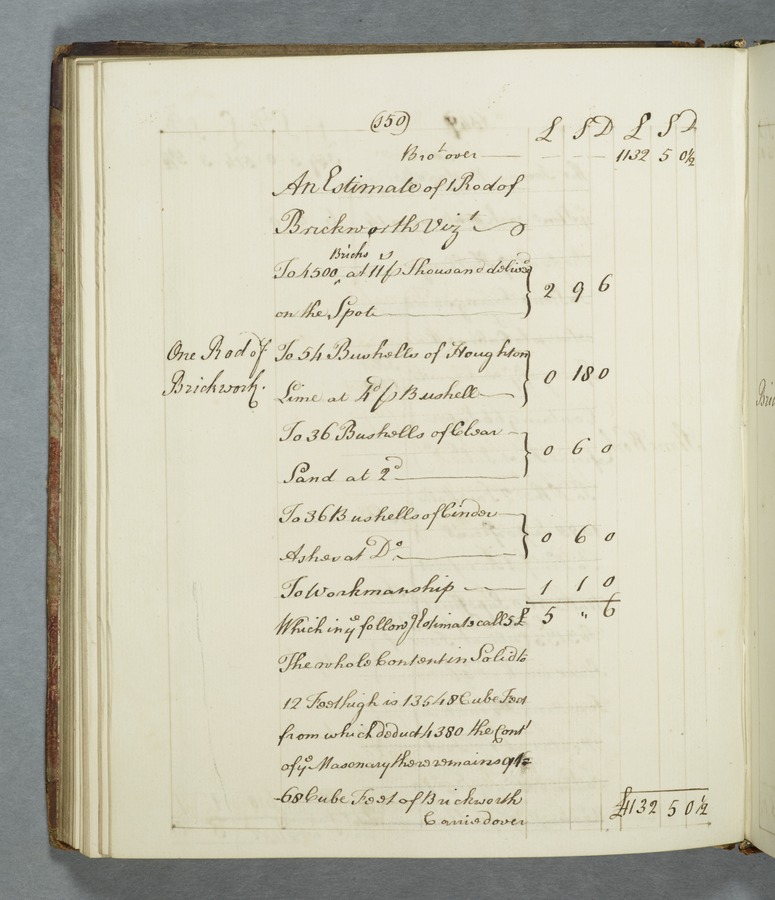 (150)
£ S D £ S D
Bro.t over 1132 5 0½
An Estimate of 1 Rod of
Brickworth Viz.t
Bricks
To 4500 at 11/ ⅌ Thousand deliv.d
on the Spot 2 9 6
One Rod of
Brickwork.
To 54 Bushells of Houghton
Lime at 4.d ⅌ Bushell 0 18 0
To 36 Bushells of Clear
Sand at 2.d 0 6 0
To 36 Bushells of Cinder
Ashes at D.o 0 6 0
To Workmanship 1 1 0
Which in y.e follow.g Estimate call 5£ 5 " 6
The whole Content in Solid to
12 Feet high is 13548 Cube Feet
from which deduct 4380 the Cont.t
of y.e Masonary there remains 91=
-68 Cube Feet of Brickworth
Carried over £1132 5 0½
Bric